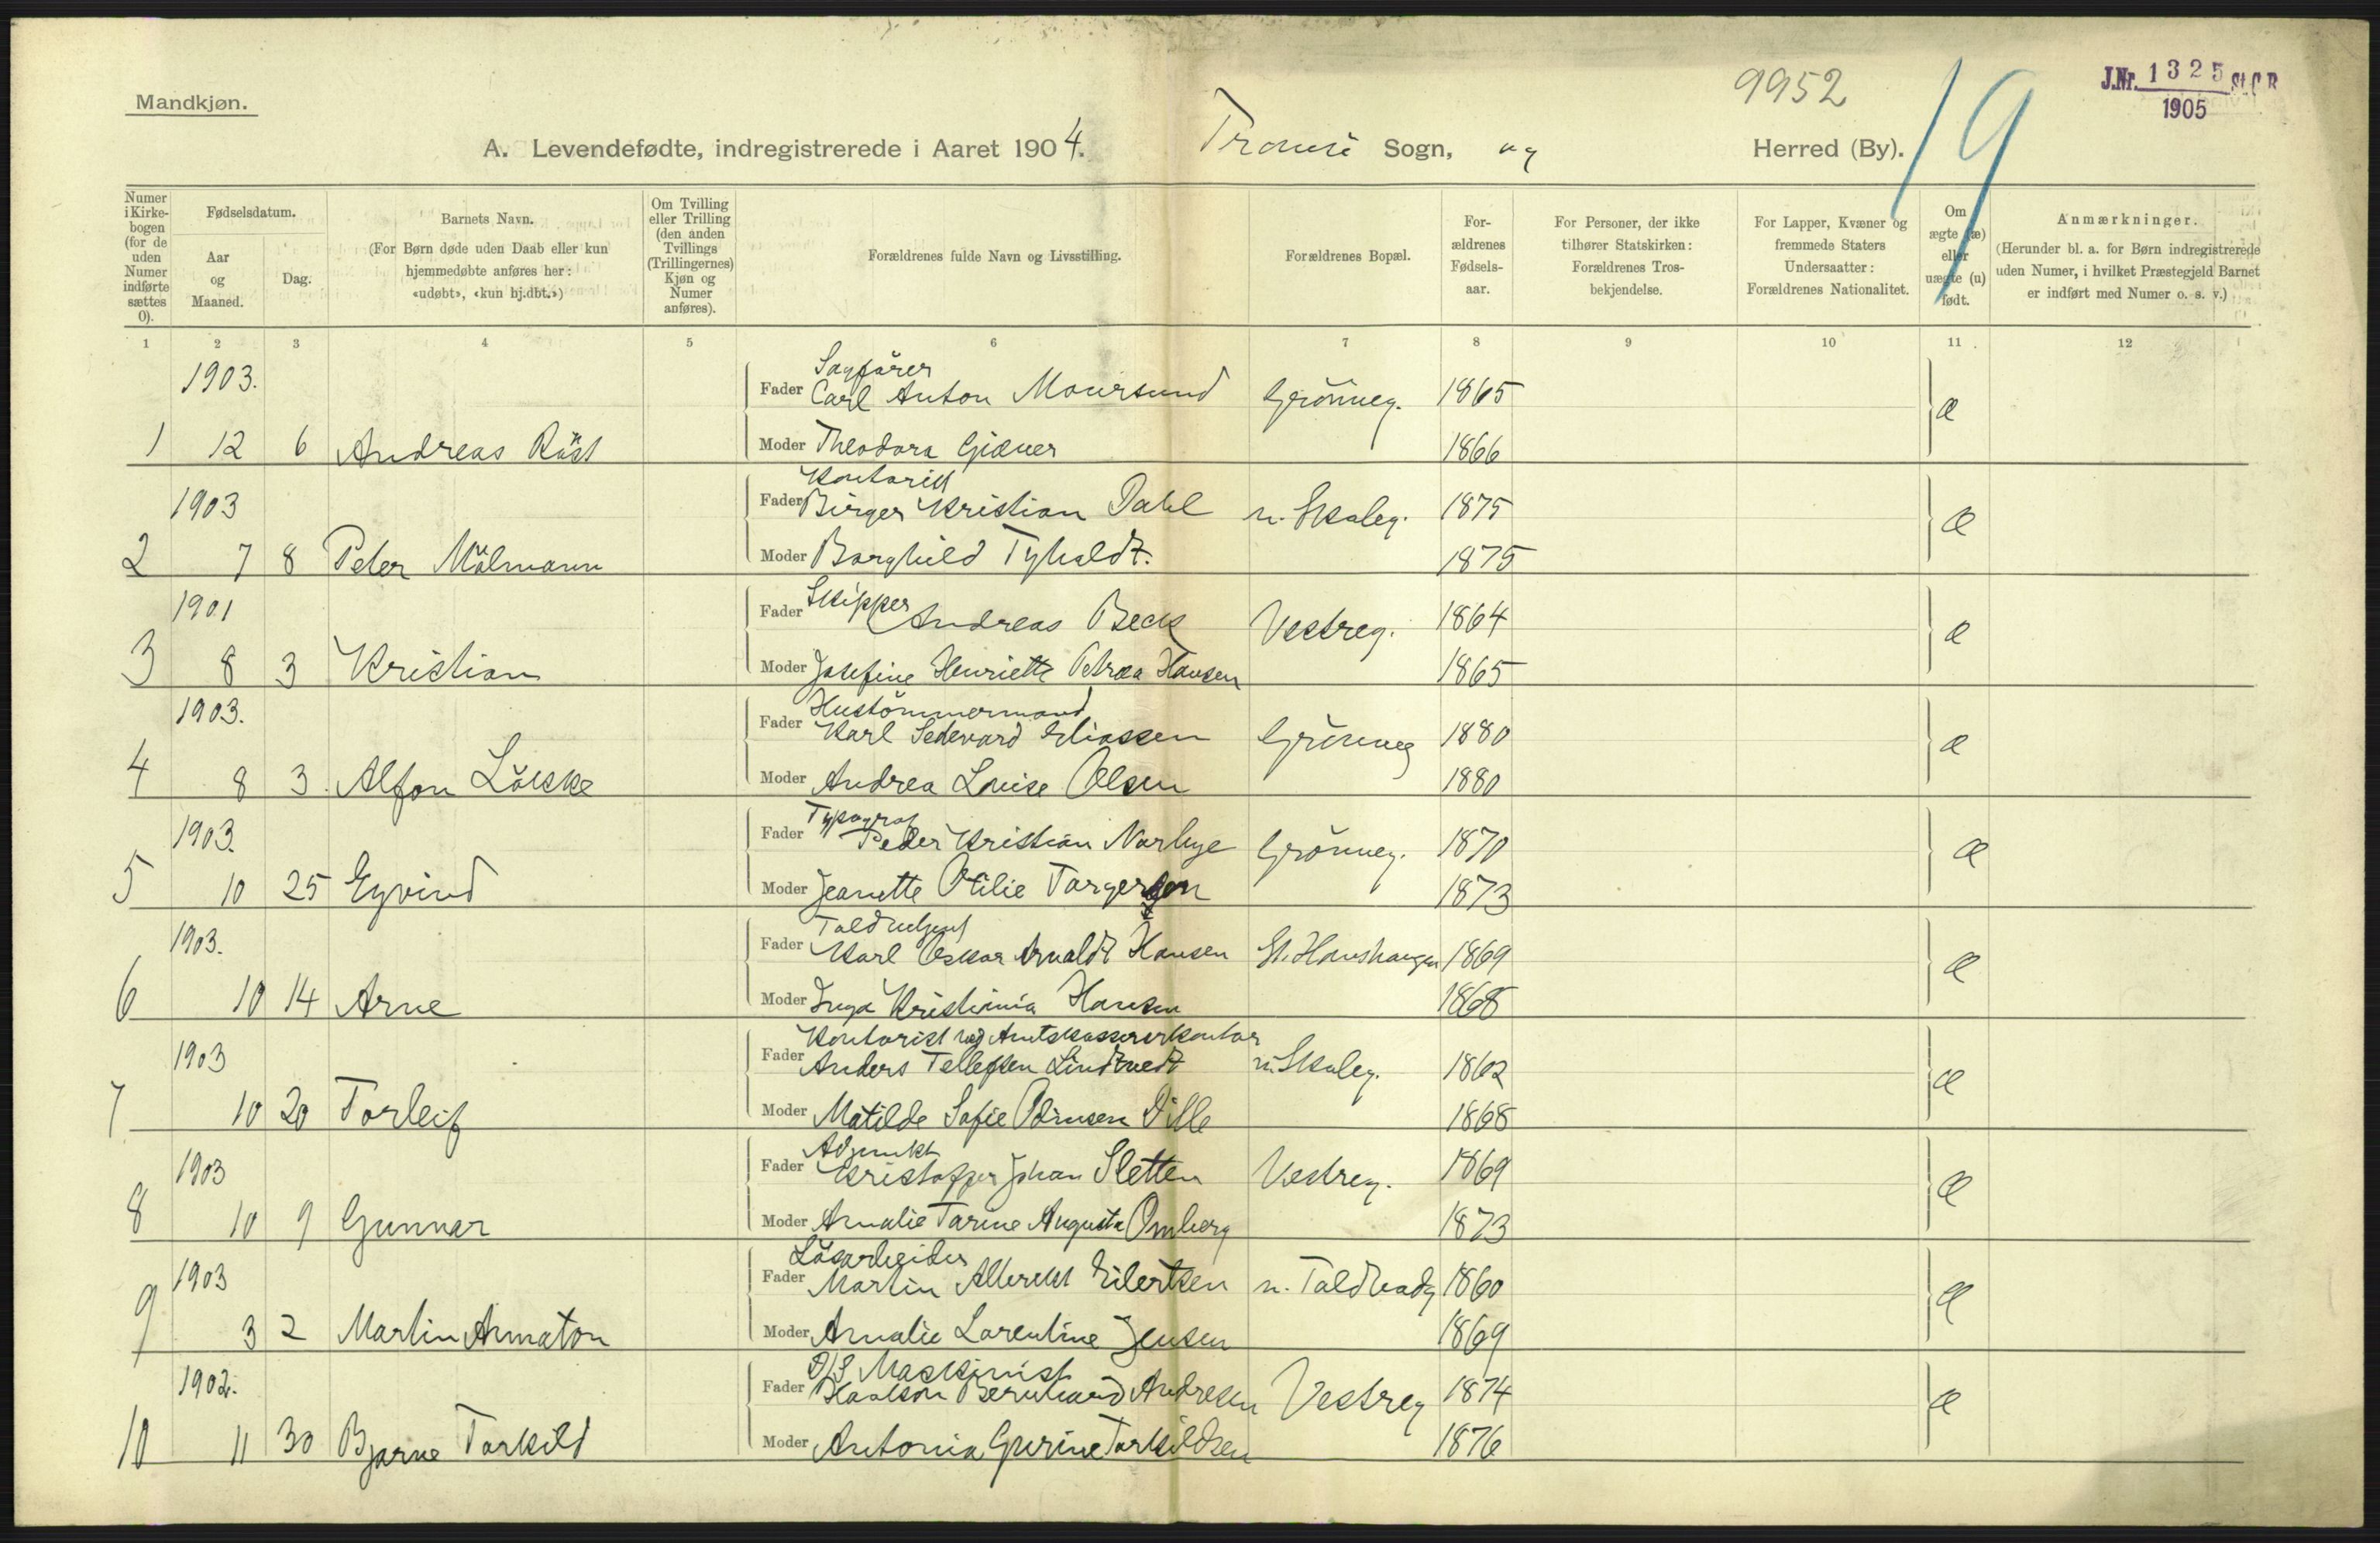 Mandkjøn.
9952
19
J.Nr. 1325 St.C.B
1905
A. Levendefødte, indregistrerede i Aaret 1904. Tromsö Sogn, og Herred (By).
Numer i Kirkebogen (for de uden Numer indførte sættes 0).
Fødselsdatum.
Aar og Maaned.
Dag.
Barnets Navn.
(For Børn døde uden Daab eller kun hjemmedøbte anføres her: «udøbt», «kun hj.dbt.»)
Om Tvilling eller Trilling (den anden Tvillings (Trillingernes) Kjøn og Numer anføres).
Forældrenes fulde Navn og Livsstilling.
Forældrenes Bopæl.
Forældrenes Fødselsaar.
For Personer, der ikke tilhører Statskirken: Forældrenes Trosbekjendelse.
For Lapper, Kvæner og fremmede Staters Undersaatter: Forældrenes Nationalitet.
Om ægte (æ) eller uægte (u) født.
Anmærkninger.
(Herunder bl. a. for Børn indregistrerede uden Numer, i hvilket Præstegjeld Barnet er indført med Numer o. s. v.)
1 2 3 4 5 6 7 8 9 10 11 12
1903. Sagförer
Fader Carl Anton Moursund Grönneg. 1865 æ
1 12 6 Andreas Röst Moder Theodora Gjæver 1866
1903 Kontorist
Fader Birger Kristian Dahl n. Skoleg. 1875 æ
2 7 8 Peter Mölmann Moder Borghild Tyholdt. 1875
1901 Skipper
Fader Andreas Beck Vestreg. 1864 æ
3 8 3 Kristian Moder Josefine Henriette Petræa Hansen 1865
1903. Hustömmermand
Fader Karl Sedevard Eliassen Grönneg 1880 æ
4 8 3 Alfon Löcke Moder Andrea Louise Olsen 1880
1903. Typograf
Fader Peder Kristian Norbye Grönneg. 1870 æ
5 10 25 Eyvind Moder Jeanette Otilie Torgersen 1873
1903. Toldbetjent
Fader Karl Oskar Arnoldt Hansen St. Hanshaugen 1869 æ
6 10 14 Arne Moder Inga Kristiania Hansen 1868
1903 Kontorist ved Amtskassererkontor
Fader Anders Tellefsen Lindtvedt n. Skoleg. 1862 æ
7 10 20 Torleif Moder Matilde Sofie Odinsen Dille 1868
1903 Adjunkt
Fader Kristoffer Johan Sletten Vestreg. 1869 æ
8 10 9 Gunnar Moder Amalie Tarine Augusta Omberg 1873
1903 Lösarbeider
Fader Martin Albrekt Eilertsen n. Toldbodg 1860 æ
9 3 2 Martin Armaton Moder Amalie Lorentine Jensen 1869
1902. D/S Maskinist
Fader Haakon Bernhard Andresen Vestreg 1874 æ
10 11 30 Bjarne Torkild Moder Antonia Gurine Torkildsen 1876